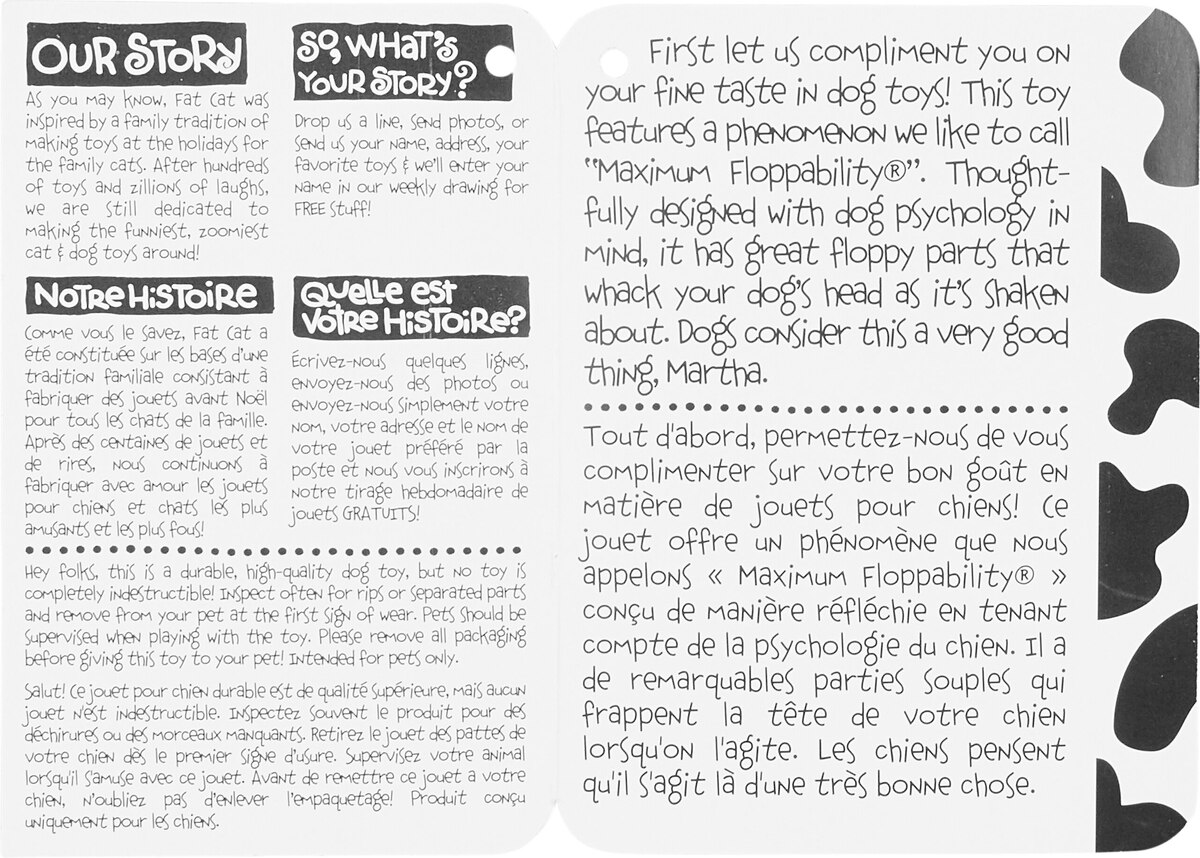 OUR STORY
As you may know, Fat Cat was
inspired by a family tradition of
making toys at the holidays for
the family cats. After hundreds
of toys and zillions of laughs,
we are still dedicated to
making the funniest, zoomiest
cat & dog toys around!
So, WHAT'S
YOUR STORY?
Drop us a line, send photos, or
send us your name, address, your
favorite toys & we'll enter your
name in our weekly drawing for
FREE stuff!
NOTRE HISTOIRE
Comme vous le savez, Fat Cat a
été constituée sur les bases d'une
tradition familiale consistant à
fabriquer des jouets avant Noël
pour tous les chats de la famille.
Après des centaines de jouets et
de rires, nous continuons à
fabriquer avec amour les jouets
pour chiens et chats les plus
amusants et les plus fous!
Quelle est
votre Histoire?
Écrivez-nous quelques lignes,
envoyez-nous des photos ou
envoyez-nous simplement votre
nom, votre adresse et le nom de
votre jouet préféré par la
poste et nous vous inscrirons à
notre tirage hebdomadaire de
jouets GRATUITS!
Hey folks, this is a durable, high-quality dog toy, but no toy is
completely indestructible! Inspect often for rips or separated parts
and remove from your pet at the first sign of wear. Pets should be
supervised when playing with the toy. Please remove all packaging
before giving this toy to your pet! Intended for pets only.
Salut! Ce jouet pour chien durable est de qualité supérieure, mais aucun
jouet n'est indestructible. Inspectez souvent le produit pour des
déchirures ou des morceaux manquants. Retirez le jouet des pattes de
votre chien dès le premier signe d'usure. Supervisez votre animal
lorsqu'il s'amuse avec ce jouet. Avant de remettre ce jouet a votre
chien, n'oubliez pas d'enlever l'empaquetage! Produit conçu
uniquement pour les chiens.
First let us compliment you on
your fine taste in dog toys! This toy
features a phenomenon we like to call
"Maximum Floppability®". Thought-
fully designed with dog psychology in
mind, it has great floppy parts that
whack your dog's head as it's shaken
about. Dogs consider this a very good
thing, Martha.
Tout d'abord, permettez-nous de vous
complimenter sur votre bon goût en
matière de jouets pour chiens! Ce
jouet offre un phénomène que nous
appelons « Maximum Floppability® »
conçu de manière réfléchie en tenant
compte de la psychologie du chien. Il a
de remarquables parties souples qui
frappent la tête de votre chien
lorsqu'on l'agite. Les chiens pensent
qu'il s'agit là d'une très bonne chose.